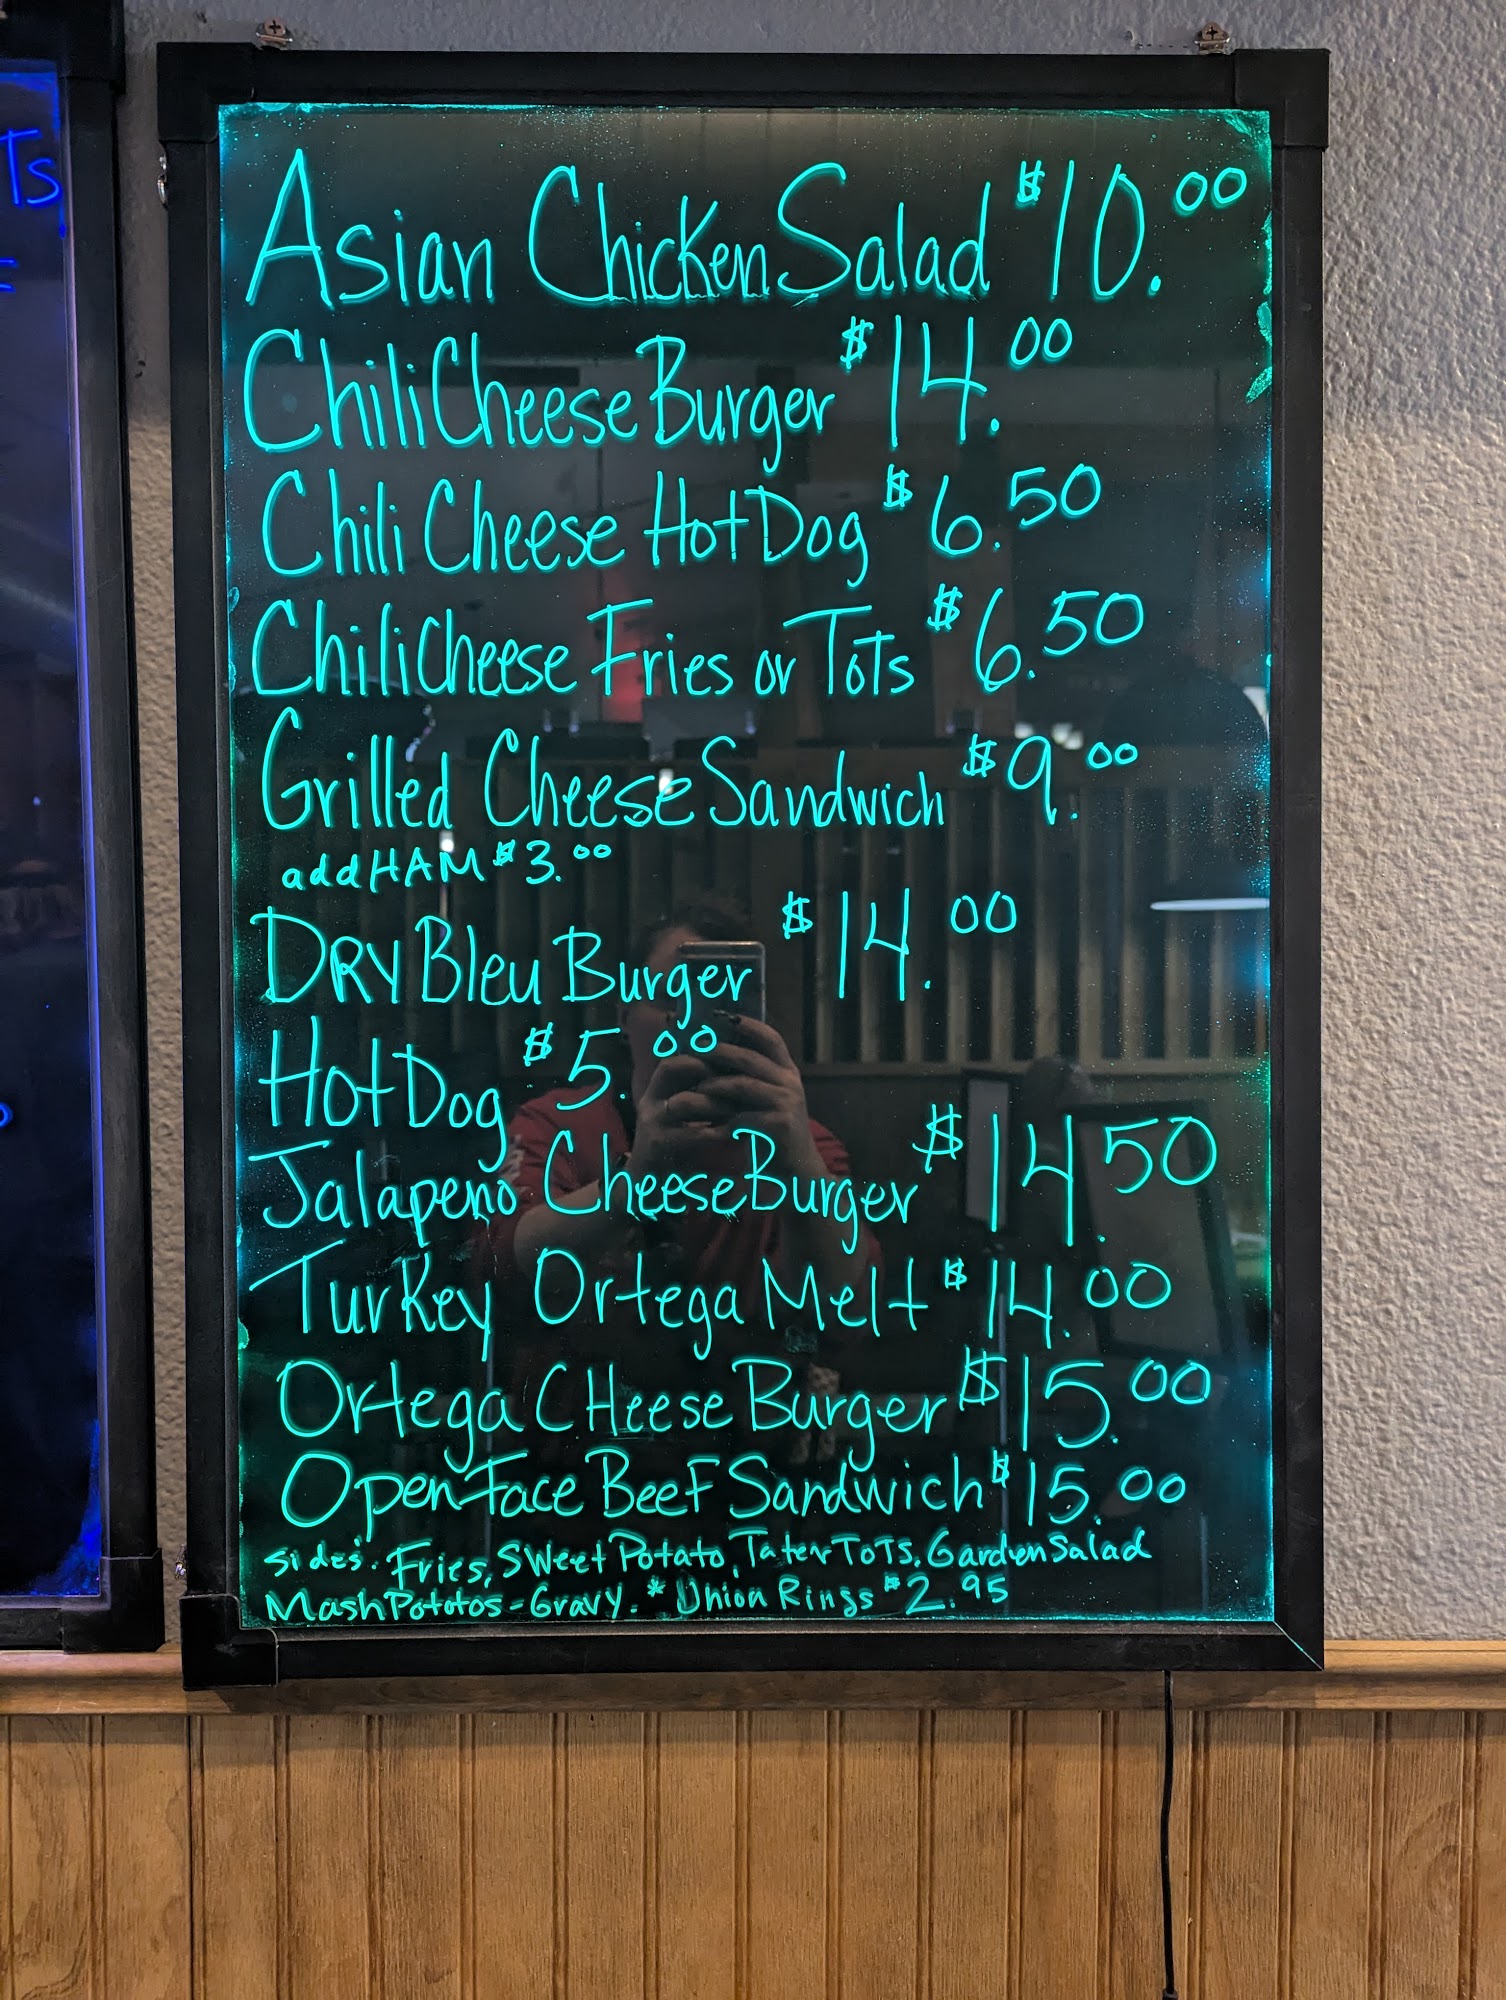 Ts
Asian Chicken Salad $10.00
Chili Cheese Burger $14.00
Chili Cheese Hot Dog $6.50
Chili Cheese Fries or Tots $6.50
Grilled Cheese Sandwich $9.00
add HAM $3.00
DRY Bleu Burger $14.00
Hot Dog $5.00
Jalapeno Cheese Burger $14.50
Turkey Ortega Melt $14.00
Ortega CHeese Burger $15.00
Open Face Beef Sandwich $15.00
Sides: Fries, Sweet Potato, Tater Tots, Garden Salad
Mash Pototos - Gravy. * Onion Rings $2.95